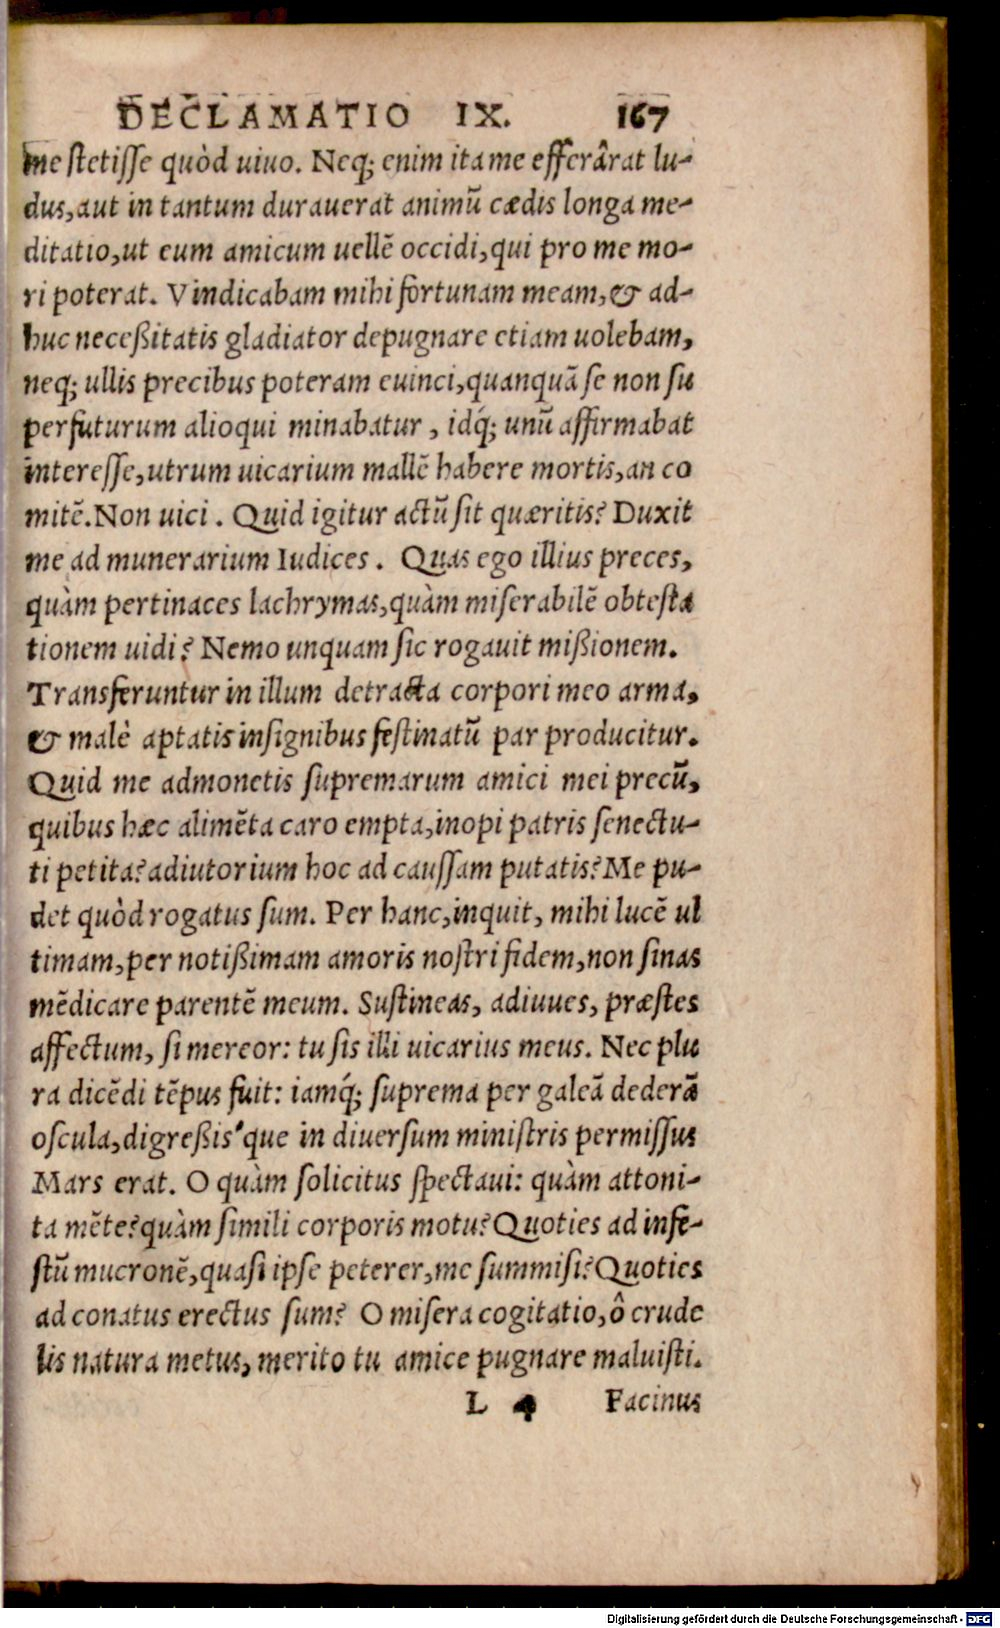 DECLAMATIO IX. 167
me stetisse quòd uiuo. Neq; enim ita me efferârat lu-
dus, aut in tantum durauerat animũ cædis longa me-
ditatio, ut eum amicum uellẽ occidi, qui pro me mo-
ri poterat. Vindicabam mihi fortunam meam, & ad-
huc neceßitatis gladiator depugnare etiam uolebam,
neq; ullis precibus poteram euinci, quanquã se non su
perfuturum alioqui minabatur, idq́; unũ affirmabat
interesse, utrum uicarium mallẽ habere mortis, an co
mitẽ. Non uici. Quid igitur actũ sit quæritis? Duxit
me ad munerarium Iudices. Quas ego illius preces,
quàm pertinaces lachrymas, quàm miserabilẽ obtesta
tionem uidi? Nemo unquam sic rogauit mißionem.
Transferuntur in illum detracta corpori meo arma,
& malè aptatis insignibus festinatũ par producitur.
Quid me admonetis supremarum amici mei precũ,
quibus hæc alimẽta caro empta, inopi patris senectu-
ti petita? adiutorium hoc ad caussam putatis? Me pu-
det quòd rogatus sum. Per hanc, inquit, mihi lucẽ ul
timam, per notißimam amoris nostri fidem, non sinas
mẽdicare parentẽ meum. Sustineas, adiuues, præstes
affectum, si mereor: tu sis illi uicarius meus. Nec plu
ra dicẽdi tẽpus fuit: iamq́; suprema per galeã dederã
oscula, digreßis'que in diuersum ministris permissus
Mars erat. O quàm solicitus spectaui: quàm attoni-
ta mẽte? quàm simili corporis motu? Quoties ad infe-
stũ mucronẽ, quasi ipse peterer, me summisi? Quoties
ad conatus erectus sum? O misera cogitatio, ô crude
lis natura metus, merito tu amice pugnare maluisti.
L 4 Facinus
Digitalisierung gefördert durch die Deutsche Forschungsgemeinschaft - DFG